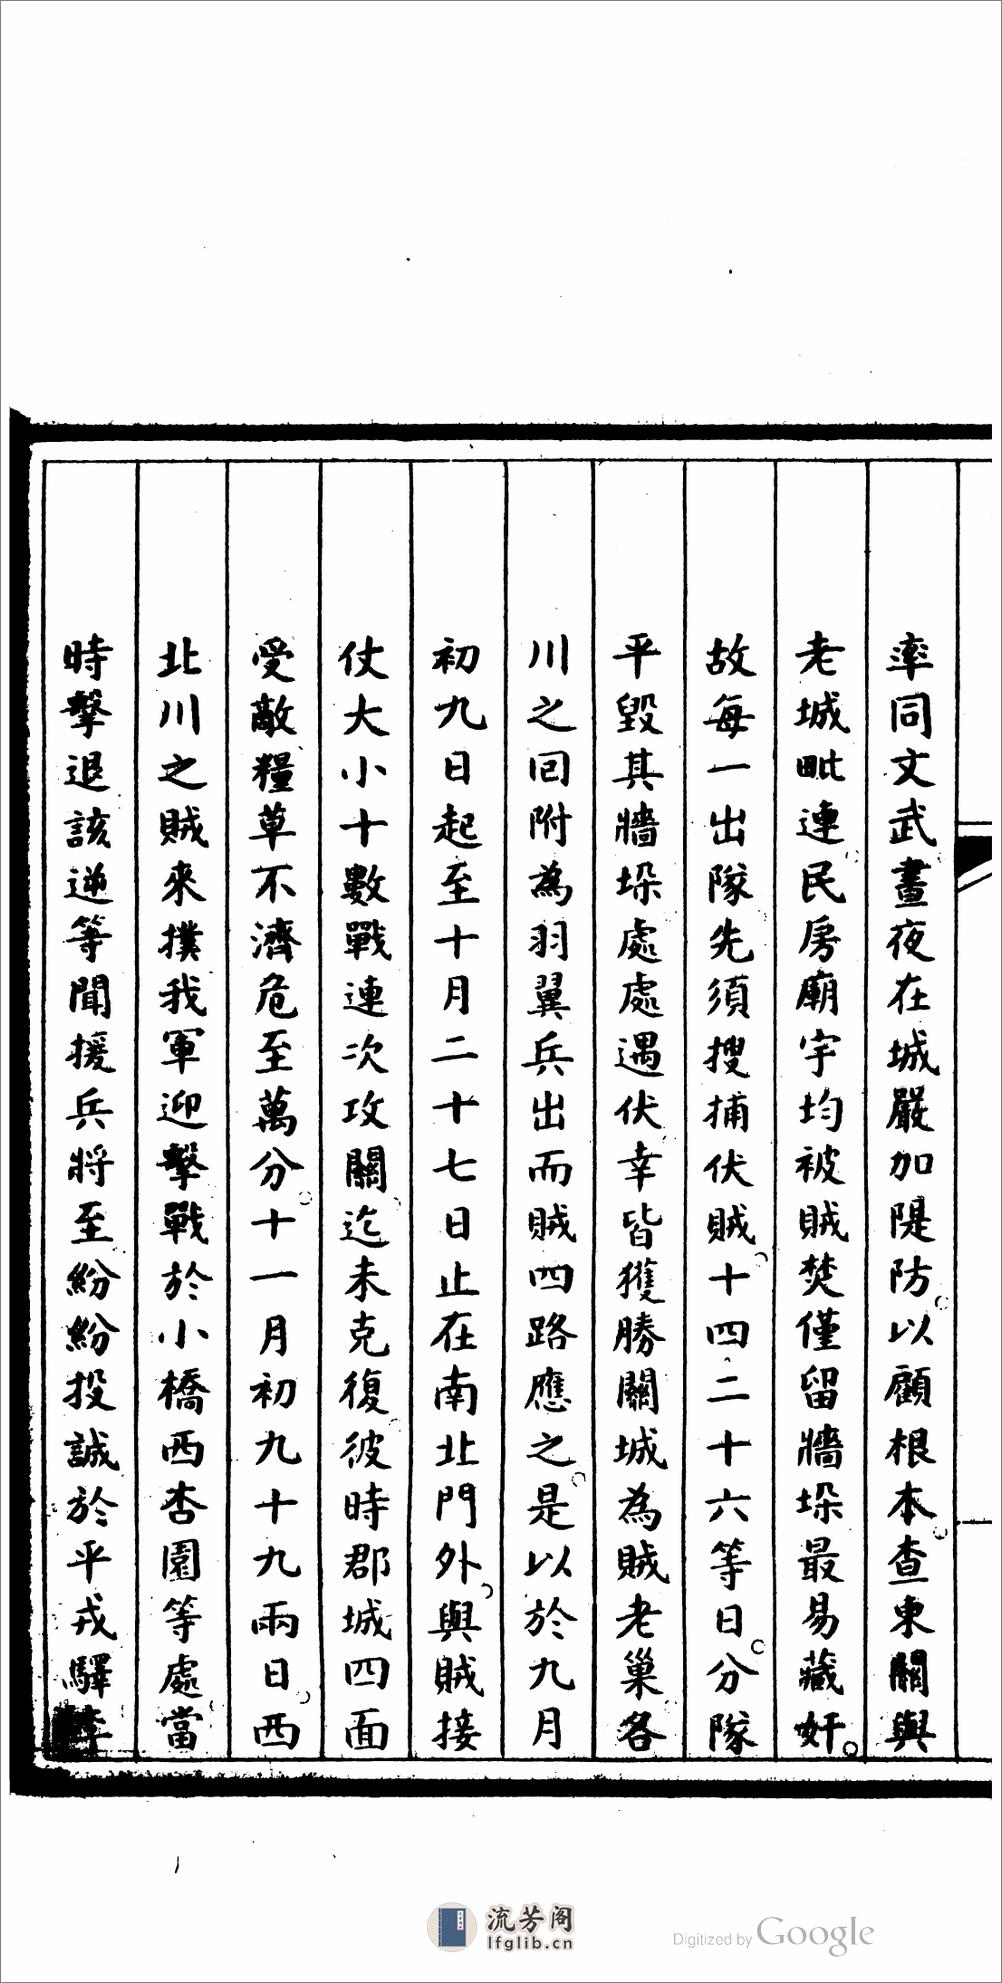 率同文武晝夜在城嚴加隄防以顧根本查東關與
老城毗連民房廟宇均被賊焚僅留牆垛最易藏奸
故每一出隊先須搜捕伏賊十四二十六等日分隊
平毀其牆垛處處遇伏幸皆獲勝關城為賊老巢各
川之回附為羽翼兵出而賊四路應之是以於九月
初九日起至十月二十七日止在南北門外與賊接
仗大小十數戰連次攻關迄未克復彼時郡城四面
受敵糧草不濟危至萬分十一月初九十九兩日西
北川之賊來撲我軍迎擊戰於小橋西杏園等處當
時擊退該逆等聞援兵將至紛紛投誠於平戎驛
流芳阁
lfglib.cn
Digitized by Google